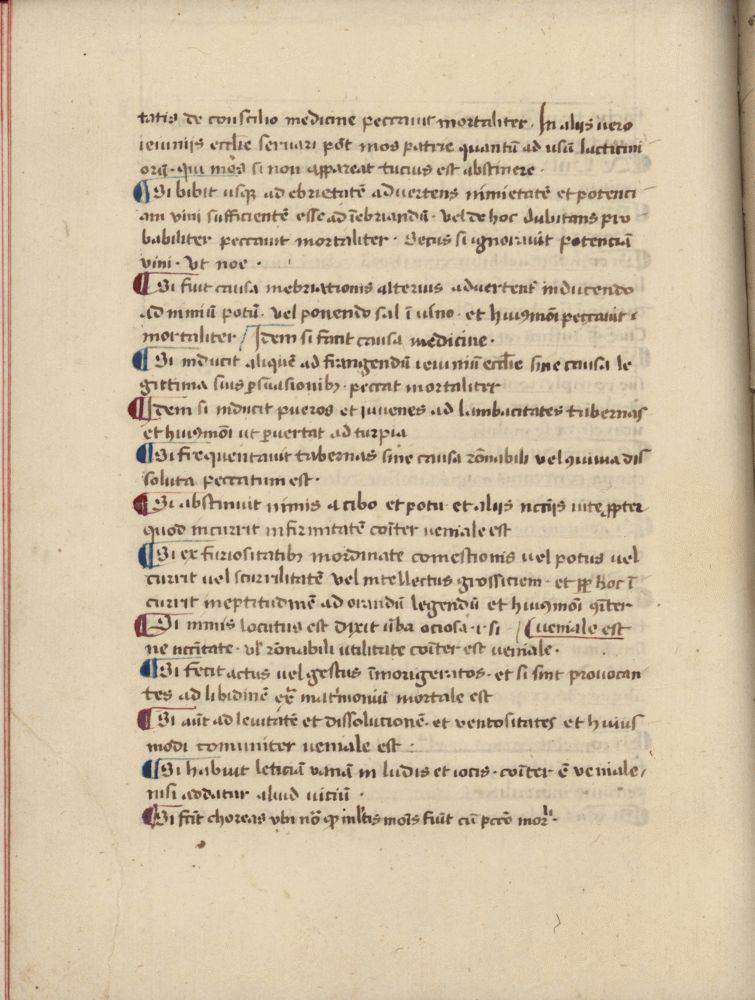 tatis de consilio medicine peccauit mortaliter. In alijs uero
ieiunijs ecclīe seruari pōt mos patrie quantū ad usū lacticini
orꝝ. qui mōs si non appareat tucius est abstinere.
¶ Si bibit usqꝫ ad ebrietatē aduertens nimietatē et potenci
am vini sufficientē esse ad īebriandū. vel de hoc dubitans pro
babiliter peccauit mortaliter. Secus si ignorauit potenciā
vini. vt noe.
¶ Si fuit causa inebriationis alterius aduertent̄ inducendo
ad nimiū potū. vel ponendo sal ī uino. et huiꝰmōi peccauit
mortaliter / Idem si facit causa medicine.
¶ Si inducit aliquē ad frangendū ieiuniū ecclīe sine causa le
gittima suis ꝑsuasionibꝫ. peccat mortaliter
¶ Idem si inducit pueros et iuuenes ad lambacitates tabernas
et huiꝰmōi ut ꝑuertat ad turpia
¶ Si frequentauit tabernas sine causa rōnabili vel ꝯuiuia dis
soluta peccatum est.
¶ Si abstinuit nimis a cibo et potu et alijs nc̄cijs uite ꝓpter
quod incurrit infirmitatē cōiter ueniale est
¶ Si ex furiositatibꝫ inordinate comestionis uel potus uel
currit uel scurrilitatē vel intellectus grossiciem. et ꝓp̄ hoc ī
currit ineptitudinē ad orandū legendū et huiꝰmōi ꝯīter
¶ Si nimis locutus est dixit ūba ociosa .i. si / ( ueniale est
ne nc̄citate. vl̄ rōnabili utilitate cōiter est ueniale.
¶ Si fecit actus uel gestus īmorigeratos. et si sint prouocan
tes ad libidinē ex̄ matīmoniū mortale est
¶ Si aūt ad leuitatē et dissolutionē. et ventositates et huius
modi comuniter ueniale est.
¶ Si habuit leticiā vanā in ludis et iocis. cōiter ē veniale /
nisi addatur aliud uiciū.
¶ Si fēit choreas ubi nō ꝙ in mōis fiūt cū pccō mor̄.